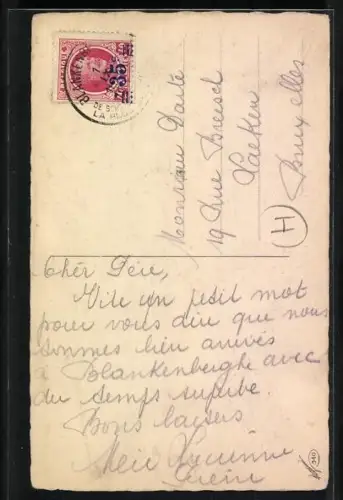 BELGIQUE
BLANKEN
LA
Monsieur
19 Rue
Laeken
Bruxelles
H
Chèr Père,
Vite un petit mot
pour vous dire que nous
sommes bien arrivés
à Blankenberghe avec
du temps superbe.
Bons baisers